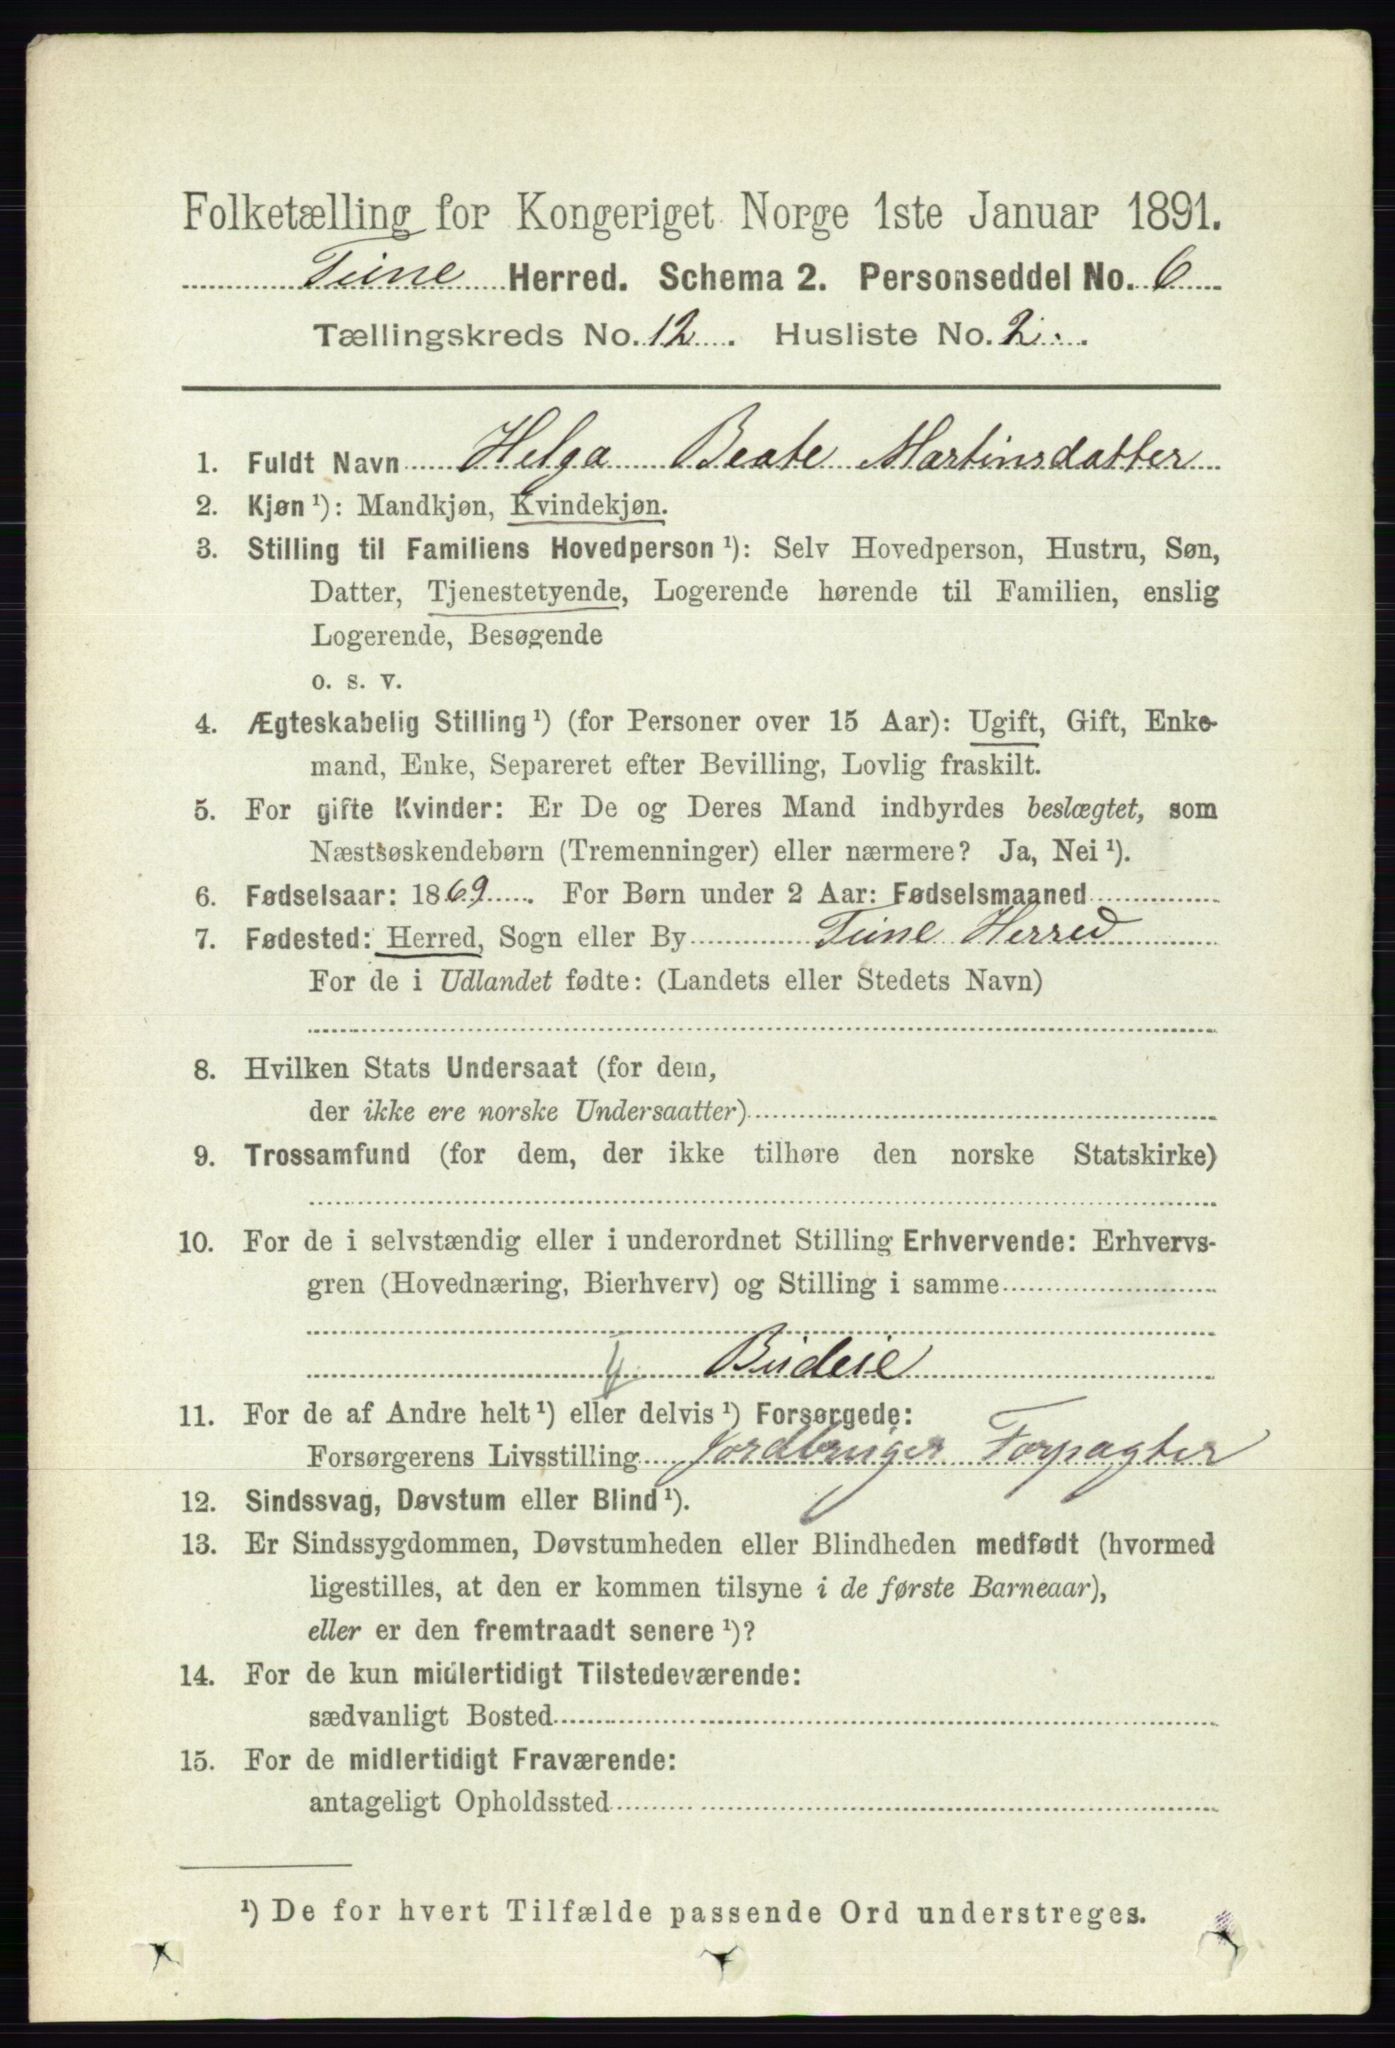 Folketælling for Kongeriget Norge 1ste Januar 1891.
Tune Herred. Schema 2. Personseddel No. 6
Tællingskreds No. 12. Husliste No. 2.
1. Fuldt Navn Helga Beate Martinsdatter
2. Kjøn ¹): Mandkjøn, Kvindekjøn.
3. Stilling til Familiens Hovedperson ¹): Selv Hovedperson, Hustru, Søn,
Datter, Tjenestetyende, Logerende hørende til Familien, enslig
Logerende, Besøgende
o. s. v.
4. Ægteskabelig Stilling ¹) (for Personer over 15 Aar): Ugift, Gift, Enke-
mand, Enke, Separeret efter Bevilling, Lovlig fraskilt.
5. For gifte Kvinder: Er De og Deres Mand indbyrdes beslægtet, som
Næstsøskendebørn (Tremenninger) eller nærmere? Ja, Nei ¹).
6. Fødselsaar: 1869. For Børn under 2 Aar: Fødselsmaaned
7. Fødested: Herred, Sogn eller By Tune Herred
For de i Udlandet fødte: (Landets eller Stedets Navn)
8. Hvilken Stats Undersaat (for dem,
der ikke ere norske Undersaatter)
9. Trossamfund (for dem, der ikke tilhøre den norske Statskirke)
10. For de i selvstændig eller i underordnet Stilling Erhvervende: Erhvervs-
gren (Hovednæring, Bierhverv) og Stilling i samme
Budeie
11. For de af Andre helt ¹) eller delvis ¹) Forsørgede:
Forsørgerens Livsstilling Jordbruger Forpagter
12. Sindssvag, Døvstum eller Blind ¹).
13. Er Sindssygdommen, Døvstumheden eller Blindheden medfødt (hvormed
ligestilles, at den er kommen tilsyne i de første Barneaar),
eller er den fremtraadt senere ¹)?
14. For de kun midlertidigt Tilstedeværende:
sædvanligt Bosted
15. For de midlertidigt Fraværende:
antageligt Opholdssted
¹) De for hvert Tilfælde passende Ord understreges.